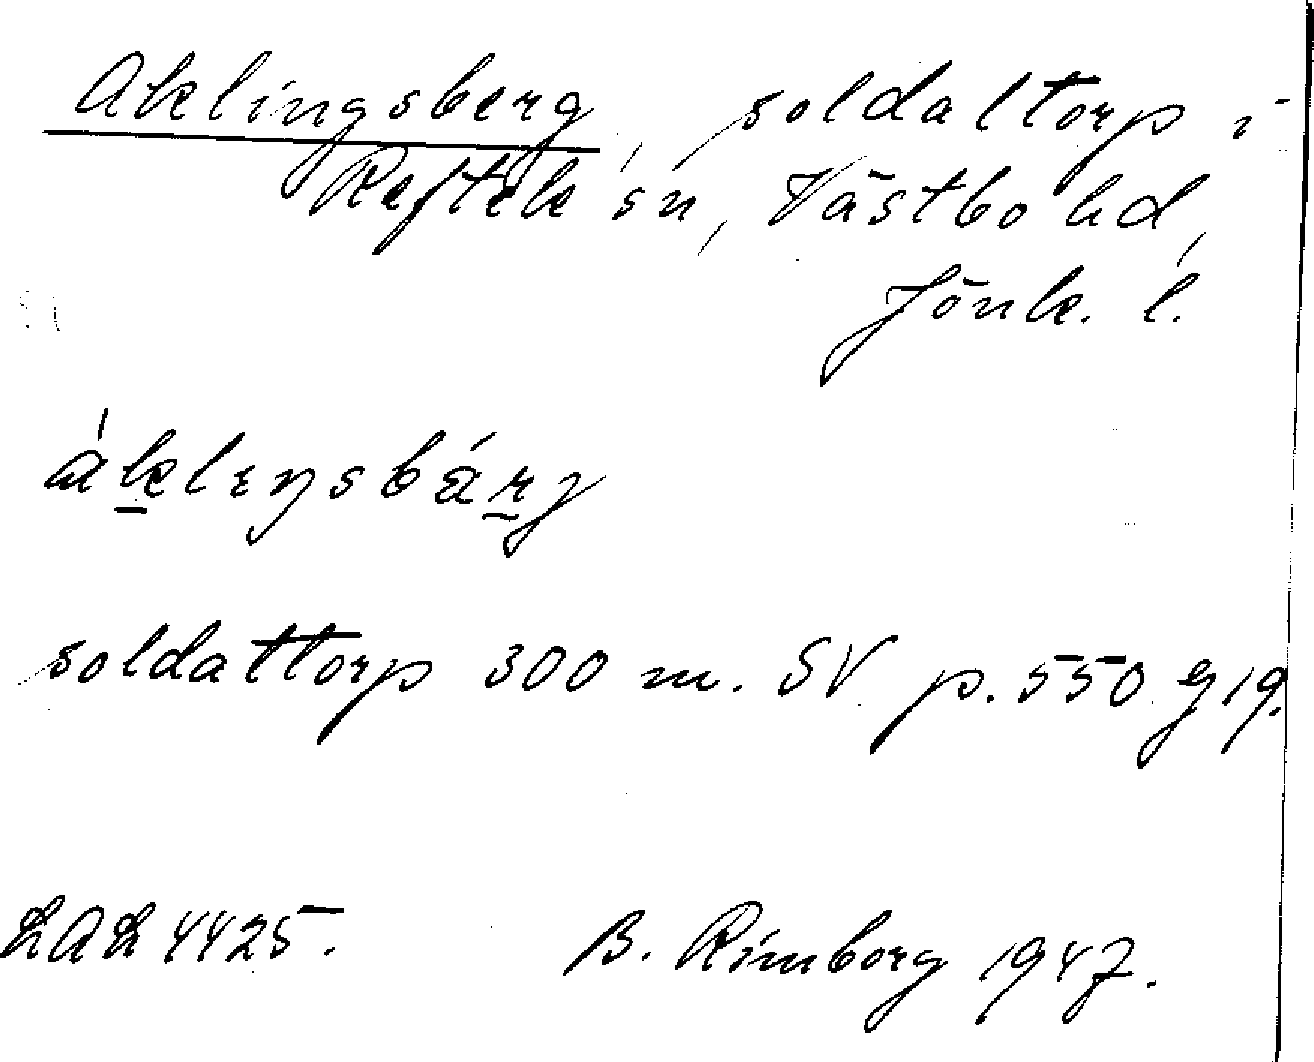 Aklingsberg, soldattorp i
Reftele sn, Västbo hd,
Jönk. l.
áklɪŋsbárj
soldattorp 300 m. SV p. 550 g 19.
LAL 4425.
B. Rimborg 1947.